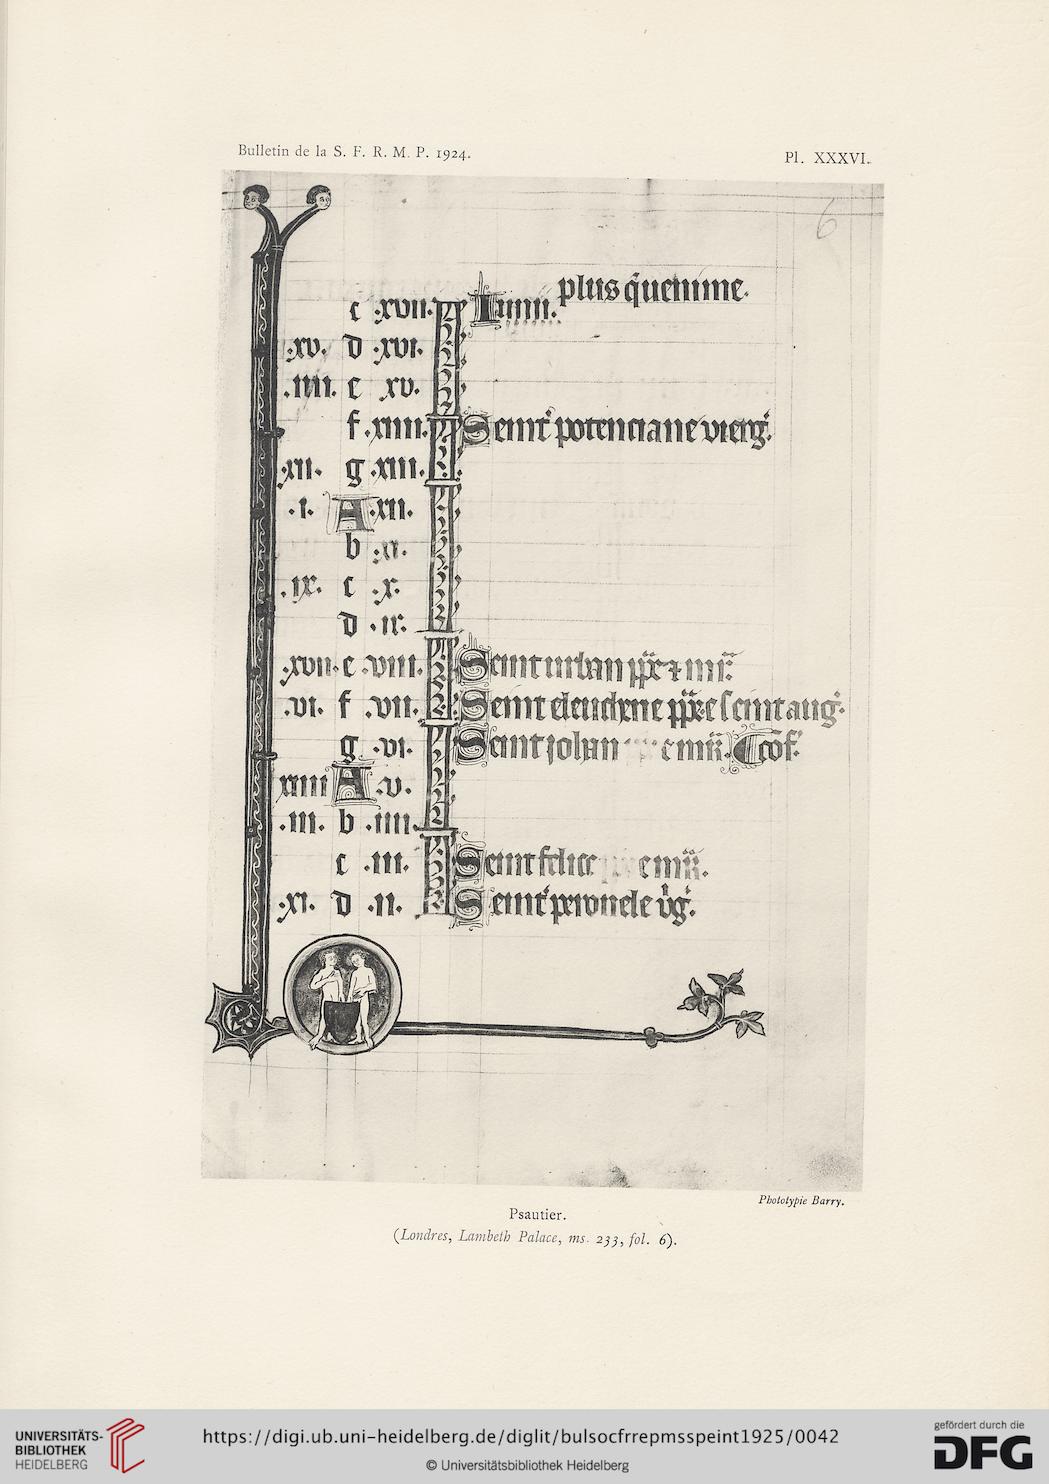 Bulletin de la S. F. R. M. P. 1924.
Pl. XXXVI.
6
plus q̄uenune.
c .xvii. Iunii.
.xv. d .xvi.
.iiii. e xv.
f .xiiii. Seint' potenciane vierg'.
.xii. g .xiii.
.i. A .xii.
b .xi.
.ix. c .x.
d .ix.
.xvii. e .viii. Seint urban ꝑꝑe ⁊ mr̄.
.vi. f .vii. Seint eleuthere ꝑꝑe. e seint aug'.
g .vi. Seint johan e mr̄. ¶ cōf.
xiiii A .v.
.iii. b .iiii.
c .iii. Seint felice e mr̄.
.xi. d .ii. Seint' peronele v̄g'.
Phototypie Barry.
Psautier.
(Londres, Lambeth Palace, ms. 233, fol. 6).
UNIVERSITÄTS-
BIBLIOTHEK
HEIDELBERG
https://digi.ub.uni-heidelberg.de/diglit/bulsocfrrepmsspeint1925/0042
© Universitätsbibliothek Heidelberg
gefördert durch die
DFG